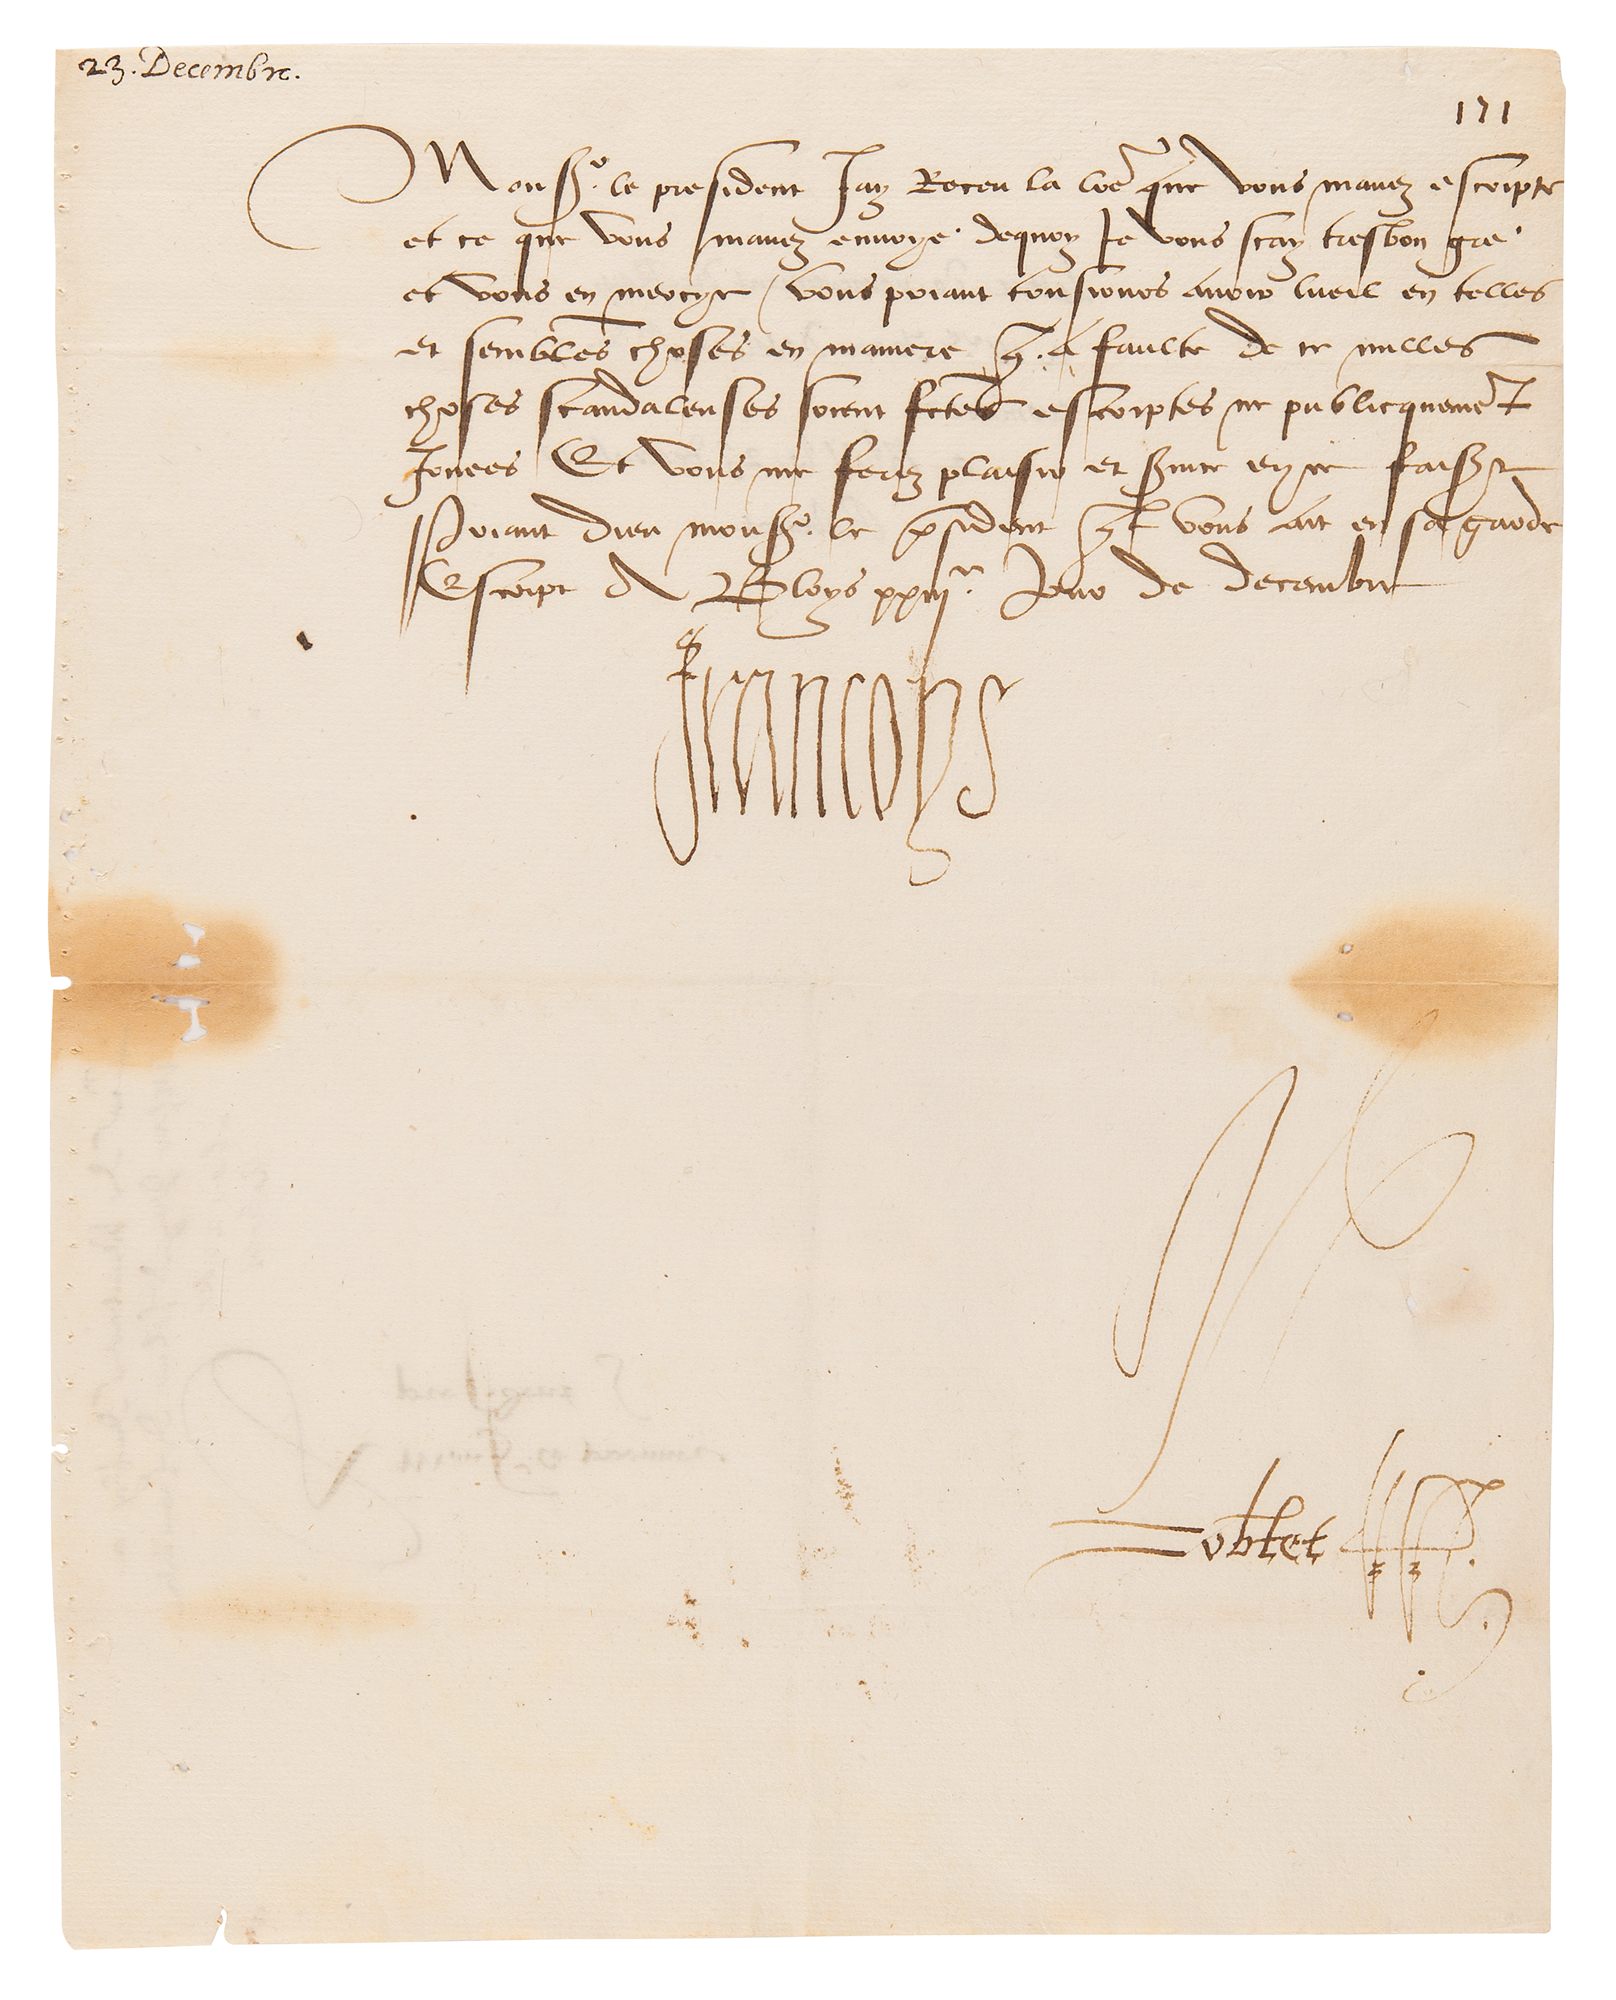 23. Decembre.
171
Monsr. le president Jay Receu la lre que vous mavez escripte
et ce que vous mavez envoye dequoy Je vous scay tresbon gre
et vous en mercye / vous priant tousiours avoir lueil en telles
et sembles choses en maniere q. a faulte de ce nulles
choses scandaleuses soient fctes escriptes ne publicquemet
Jouees Et vous me ferez plaisir et svice en ce faisant
Priant dieu monsr. le psident ql vous ait en sa garde
Escript A Bloys xxiije. Jour de decembre
Francoys
Robtet